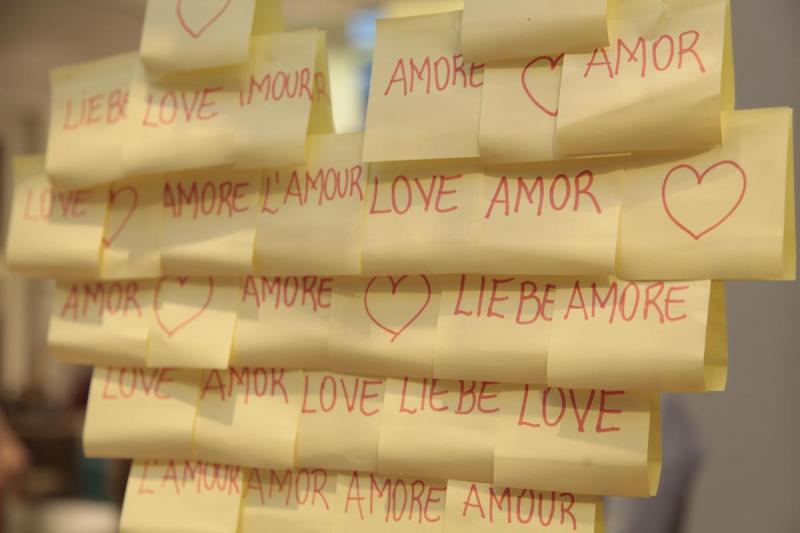 AMORE AMOR
LIEBE LOVE AMOUR
LOVE AMORE L'AMOUR LOVE AMOR
AMOR AMORE LIEBE AMORE
LOVE AMOR LOVE LIEBE LOVE
L'AMOUR AMOR AMORE AMOUR